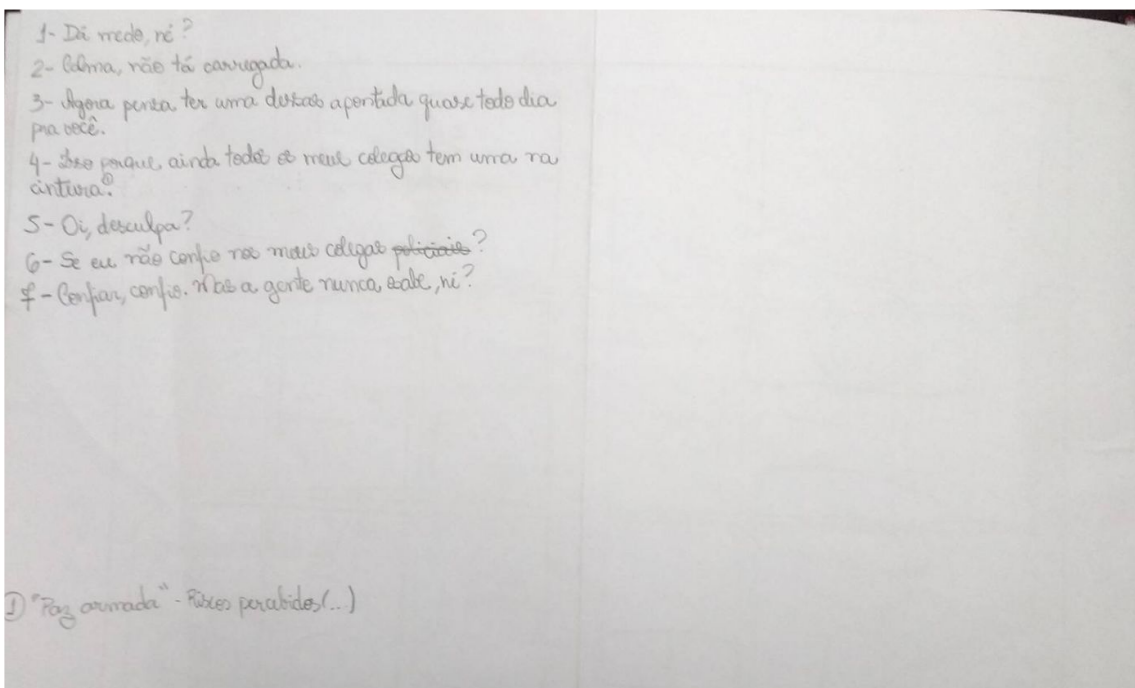 1- Dá medo, né?
2- Calma, não tá carregada.
3- Agora pensa ter uma dessas apontada quase todo dia
pra você.
4- Isso porque ainda todos os meus colegas tem uma na
cintura①.
5- Oi, desculpa?
6- Se eu não confio nos meus colegas policiais?
7- Confiar, confio. Mas a gente nunca sabe, né?
① "Paz armada" - Riscos percebidos (...)